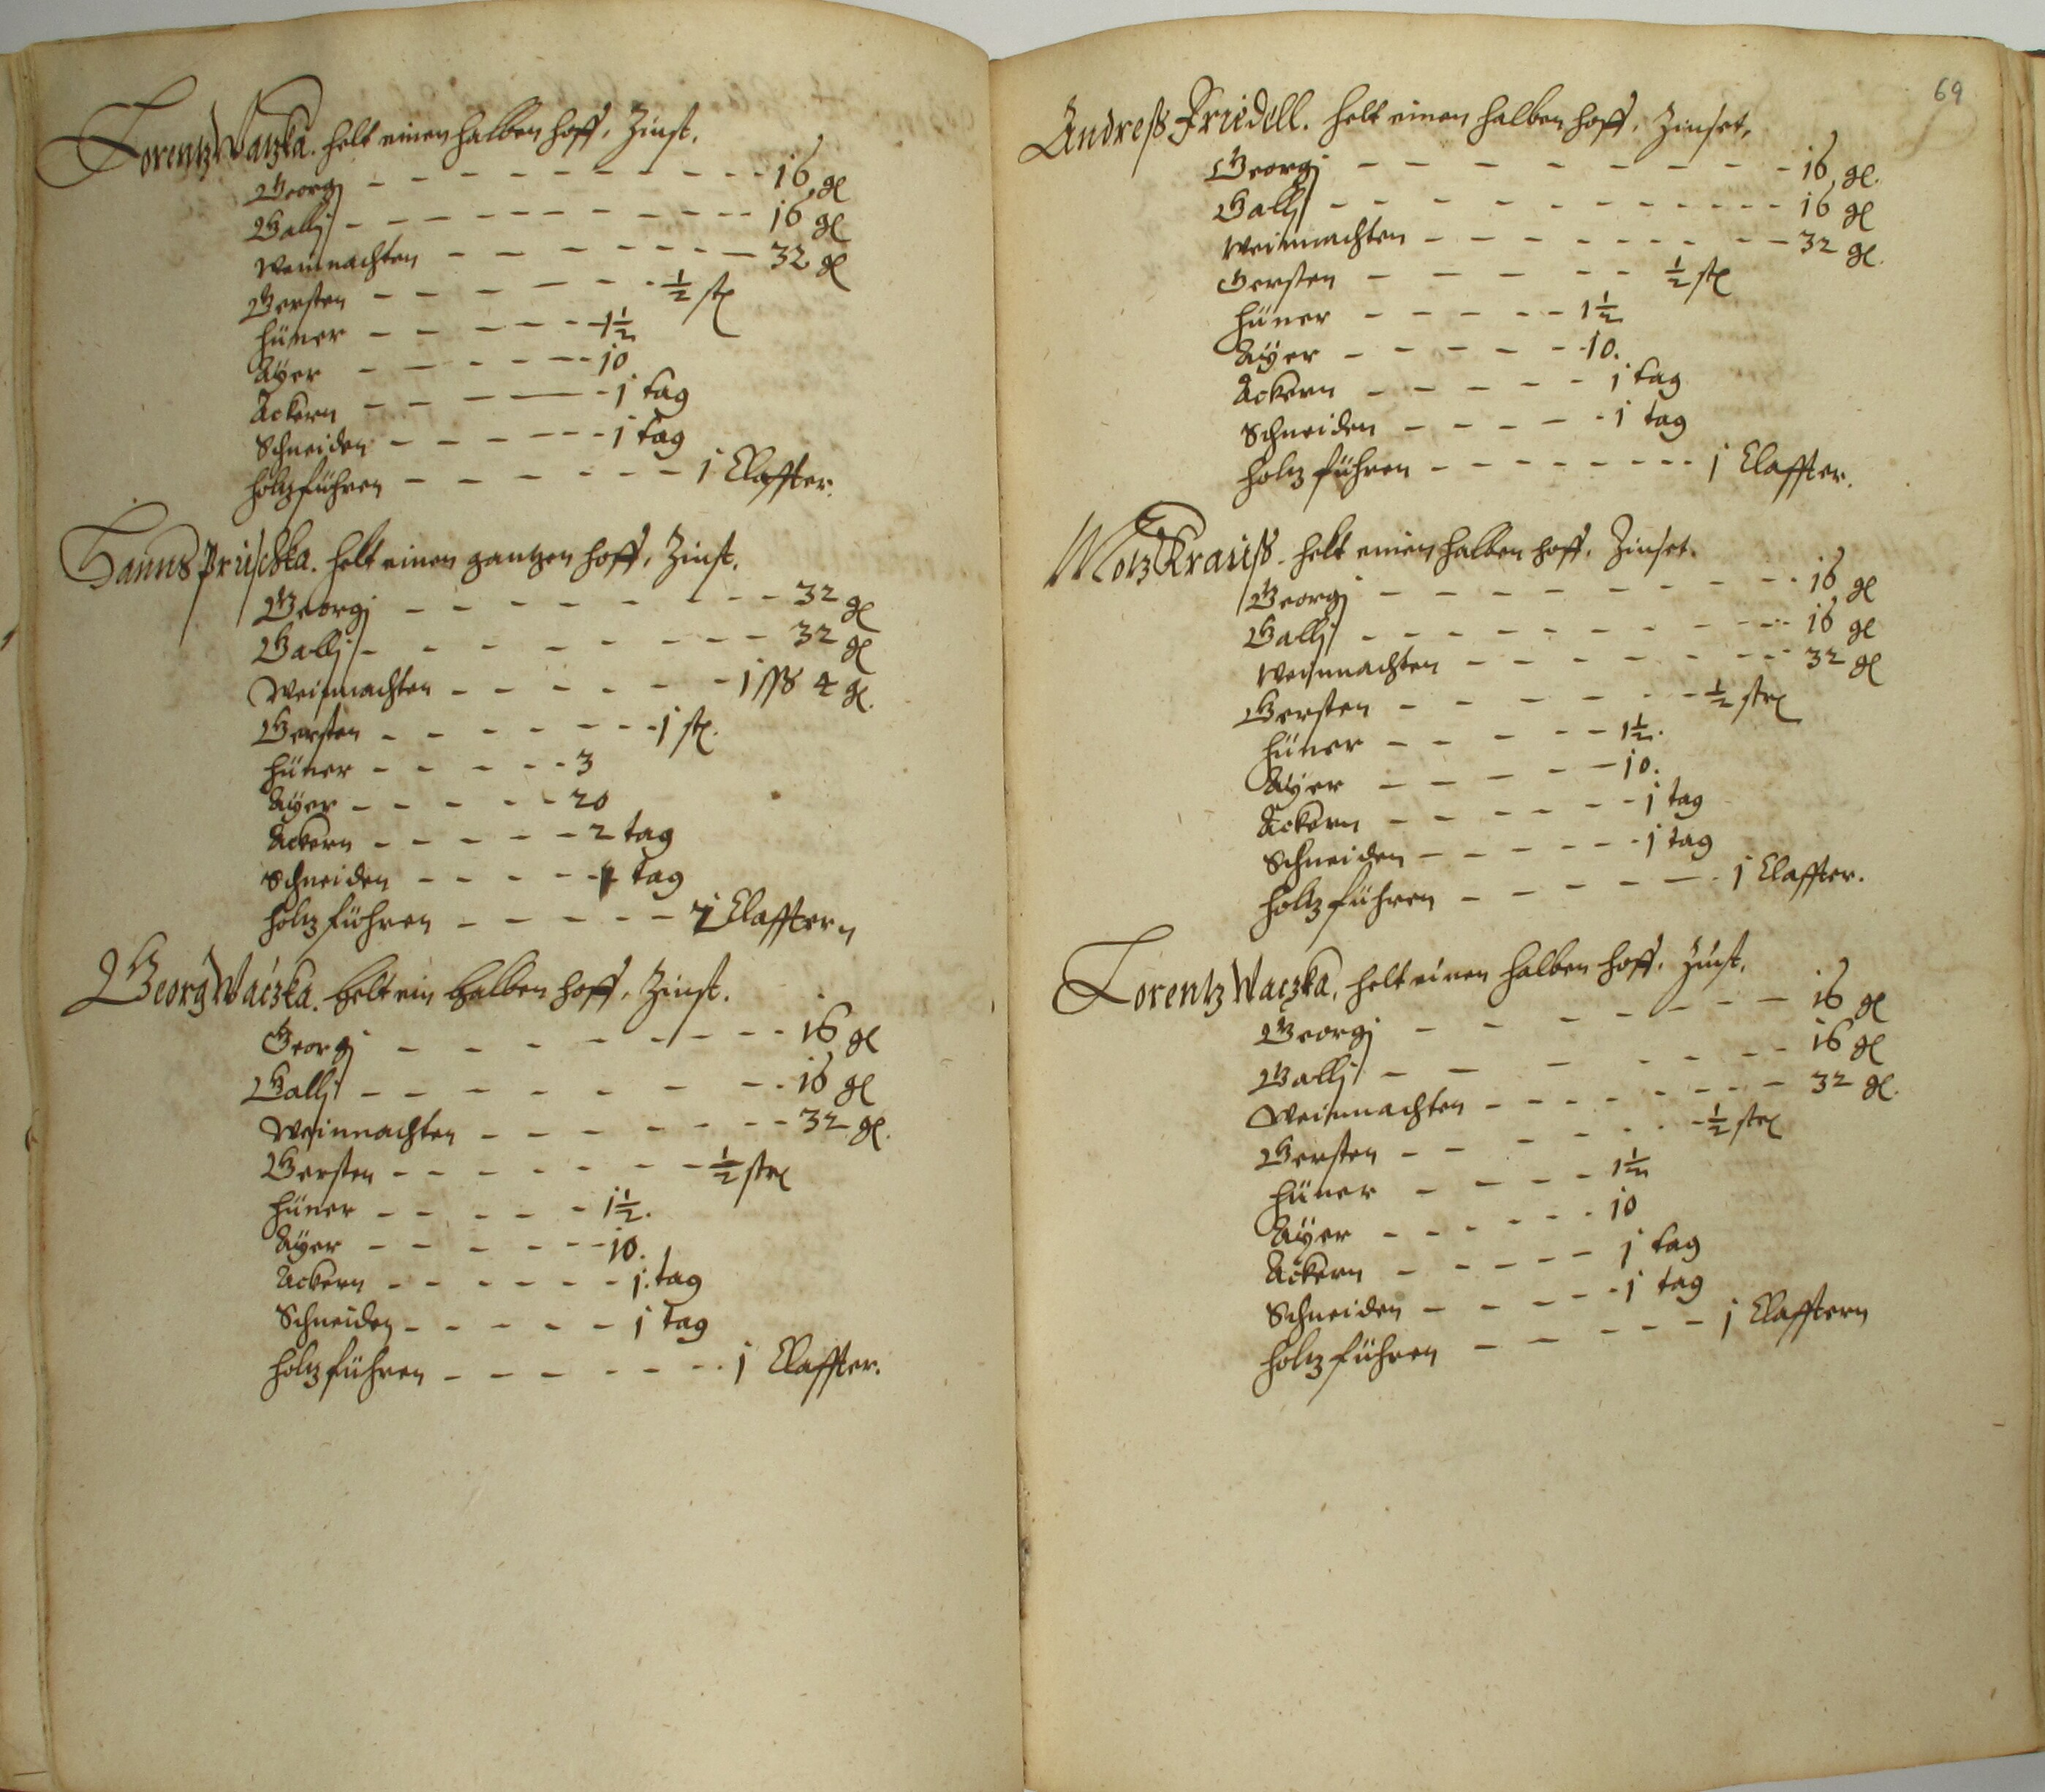 Lorentz Waczka. helt einen halben hoff, Zinst.
Georgj - - - - - - - - - - 16 gl
Gallj - - - - - - - - - - 16 gl
Weinnachten - - - - - - - 32 gl
Gersten - - - - - - ½ stl
hüner - - - - - - 1½
Ayer - - - - - - 10
Ackern - - - - - 1 tag
Schneiden - - - - - - 1 tag
holtz führen - - - - - - 1 Claffter.
Hanns Pruschka. helt einen gantzen hoff, Zinst.
Georgj - - - - - - - - - 32 gl
Gallj - - - - - - - - 32 gl
Weinnachten - - - - - - 1 ßß 4 gl.
Gersten - - - - - - - 1 stl.
hüner - - - - - 3
Ayer - - - - - 20
Ackern - - - - - 2 tag
Schneiden - - - - - tag
holtz führen - - - - - Clafftern
Georg Waczka. helt ein halben hoff, Zinst.
Georgj - - - - - - - - - 16 gl
Gallj - - - - - - - - 16 gl
Weinnachten - - - - - - - 32 gl.
Gersten - - - - - - - ½ strl
hüner - - - - - 1½.
Ayer - - - - - - 10.
Ackern - - - - - - 1. tag
Schneiden - - - - - 1 tag
holtz führen - - - - - - - 1 Claffter.
69
Andreß Friedell. helt einen halben hoff, Zinset.
Georgj - - - - - - - - - - 16 gl.
Gallj - - - - - - - - - - - 16 gl
Weinnachten - - - - - - - - 32 gl.
Gersten - - - - - - ½ stl
hüner - - - - - 1½
Ayer - - - - - - 10.
Ackern - - - - - 1 tag
Schneiden - - - - - - 1 tag
holtz führen - - - - - - - - 1 Claffter.
Motz Krauß. helt einen halben hoff, Zinset.
Georgj - - - - - - - - - - 16 gl
Gallj - - - - - - - - - - 16 gl
Weinnachten - - - - - - - 32 gl
Gersten - - - - - - - ½ strl
hüner - - - - - 1½.
Ayer - - - - - 10.
Ackern - - - - - - 1 tag
Schneiden - - - - - - 1 tag
holtz führen - - - - - - 1 Claffter.
Lorentz Waczka, helt einen halben hoff, Zinst.
Georgj - - - - - - - - 16 gl
Gallj - - - - - - - - 16 gl
Weinnachten - - - - - - - - 32 gl.
Gersten - - - - - - - ½ strl
hüner - - - - - 1½
Ayer - - - - - - 10
Ackern - - - - - 1 tag
Schneiden - - - - - - 1 tag
holtz führen - - - - - 1 Clafftern